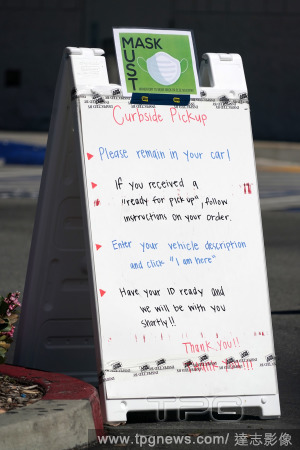 MASK
MUST
Curbside Pickup
Please remain in your car!
If you received a
"ready for pick up", follow
instructions on your order.
Enter your vehicle description
and click "I am here"
Have your ID ready and
we will be with you
shortly!!
Thank you!!
TPG
www.tpgnews.com/ 達志影像